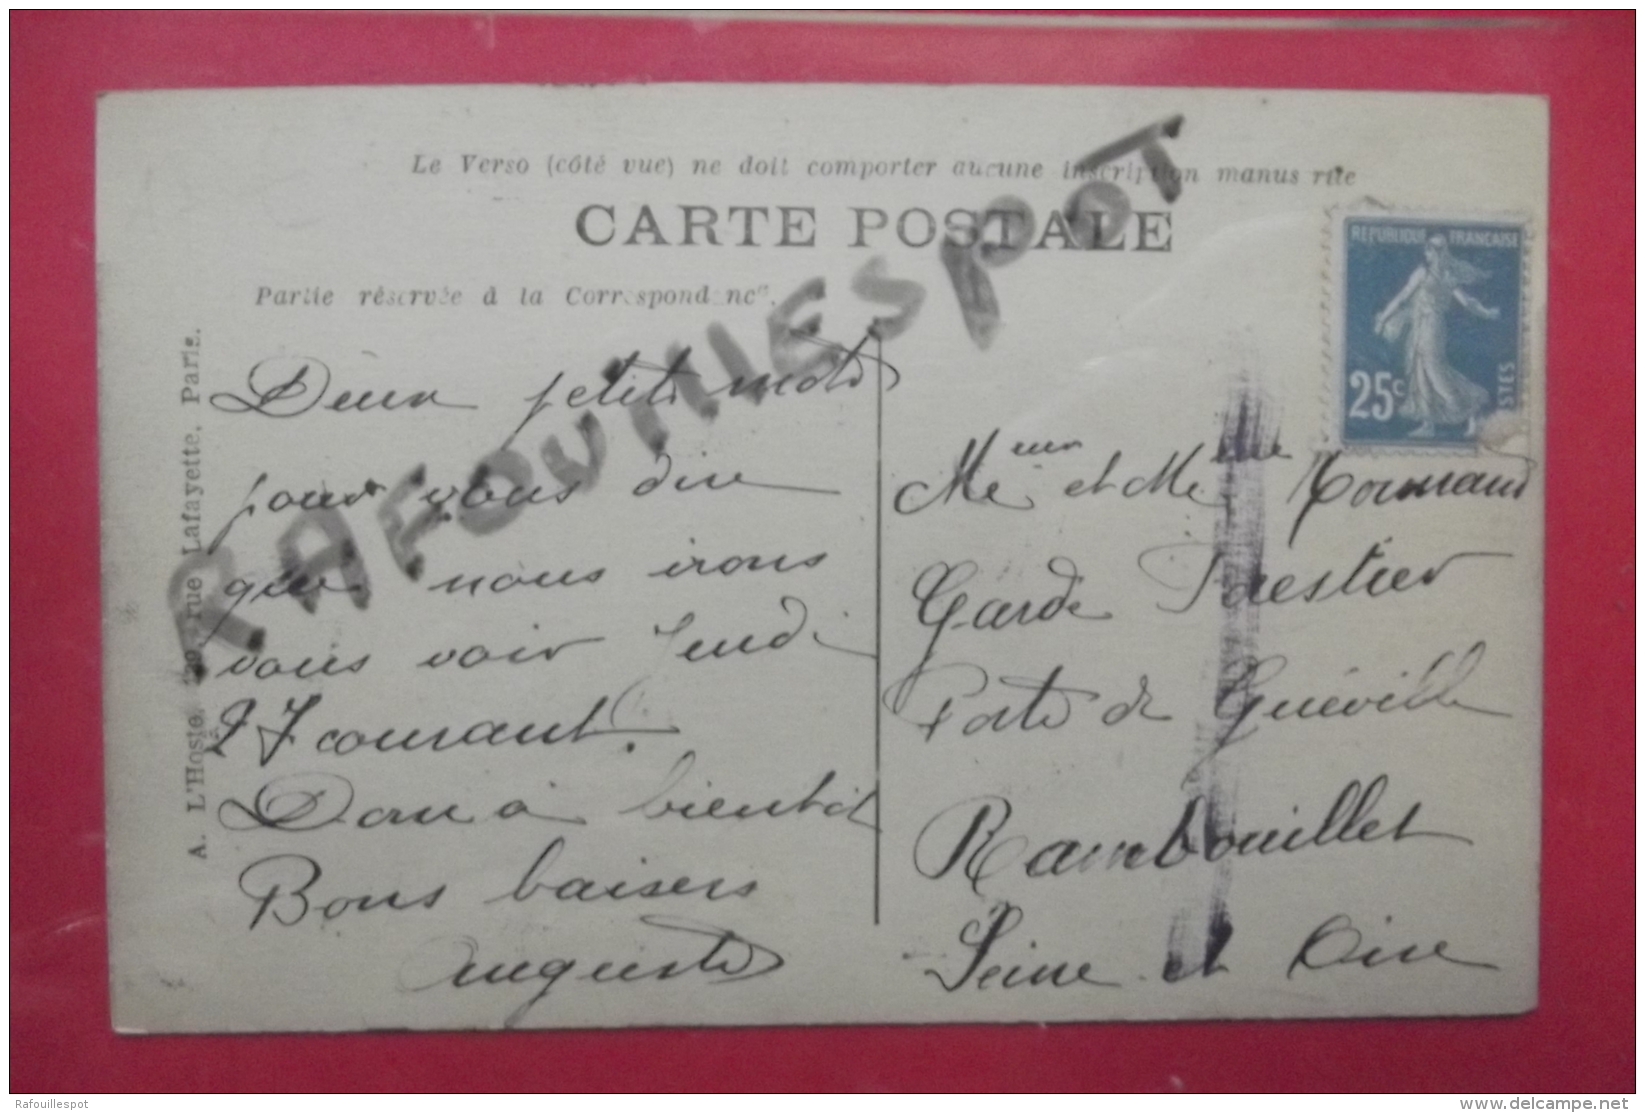 Le Verso (côté vue) ne doit comporter aucune inscription manus rite
CARTE POSTALE
Partie réservée à la Correspondance.
RAFOUILLESPOT
REPUBLIQUE FRANÇAISE
25c
A. L'Hoste, rue Lafayette, Paris.
Deux petits mots
pour vous dire
que nous irons
vous voir Jeudi
27 courant.
Donc à bientôt
Bons baisers
Auguste
Mr et Mme
Garde Forestier
Porte de Guéville
Rambouillet
Seine et Oise
Rafouillespot
delcampe.net